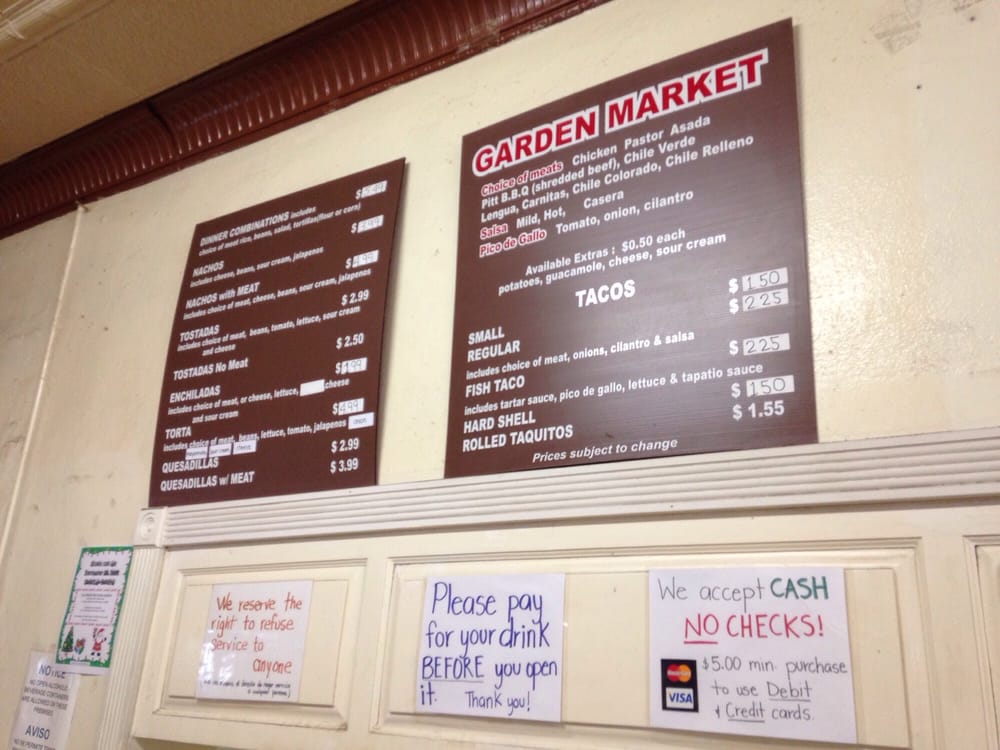 DINNER COMBINATIONS includes
choice of meat rice, beans, salad, tortillas(flour or corn)
NACHOS
includes cheese, beans, sour cream, jalapenos
NACHOS with MEAT
includes choice of meat, cheese, beans, sour cream, jalapenos
TOSTADAS $ 2.99
includes choice of meat, beans, tomato, lettuce, sour cream
and cheese
TOSTADAS No Meat $ 2.50
ENCHILADAS
includes choice of meat, or cheese, lettuce, cheese
and sour cream
TORTA $ 4.99
includes choice of meat, beans, lettuce, tomato, jalapenos
QUESADILLAS $ 2.99
QUESADILLAS w/ MEAT $ 3.99
GARDEN MARKET
Choice of meats Chicken Pastor Asada
Pitt B.B.Q (shredded beef), Chile Verde
Lengua, Carnitas, Chile Colorado, Chile Relleno
Salsa Mild, Hot, Casera
Pico de Gallo Tomato, onion, cilantro
Available Extras : $0.50 each
potatoes, guacamole, cheese, sour cream
TACOS
SMALL $ 1.50
REGULAR $ 2.25
includes choice of meat, onions, cilantro & salsa
FISH TACO $ 2.25
includes tartar sauce, pico de gallo, lettuce & tapatio sauce
HARD SHELL $ 1.50
ROLLED TAQUITOS $ 1.55
Prices subject to change
We reserve the
right to refuse
service to
anyone
Please pay
for your drink
BEFORE you open
it. Thank you!
We accept CASH
NO CHECKS!
MasterCard
VISA
$5.00 min. purchase
to use Debit
& Credit cards.
NOTICE
NO OPEN ALCOHOLIC
BEVERAGE CONTAINERS
ARE ALLOWED ON THESE
PREMISES
AVISO